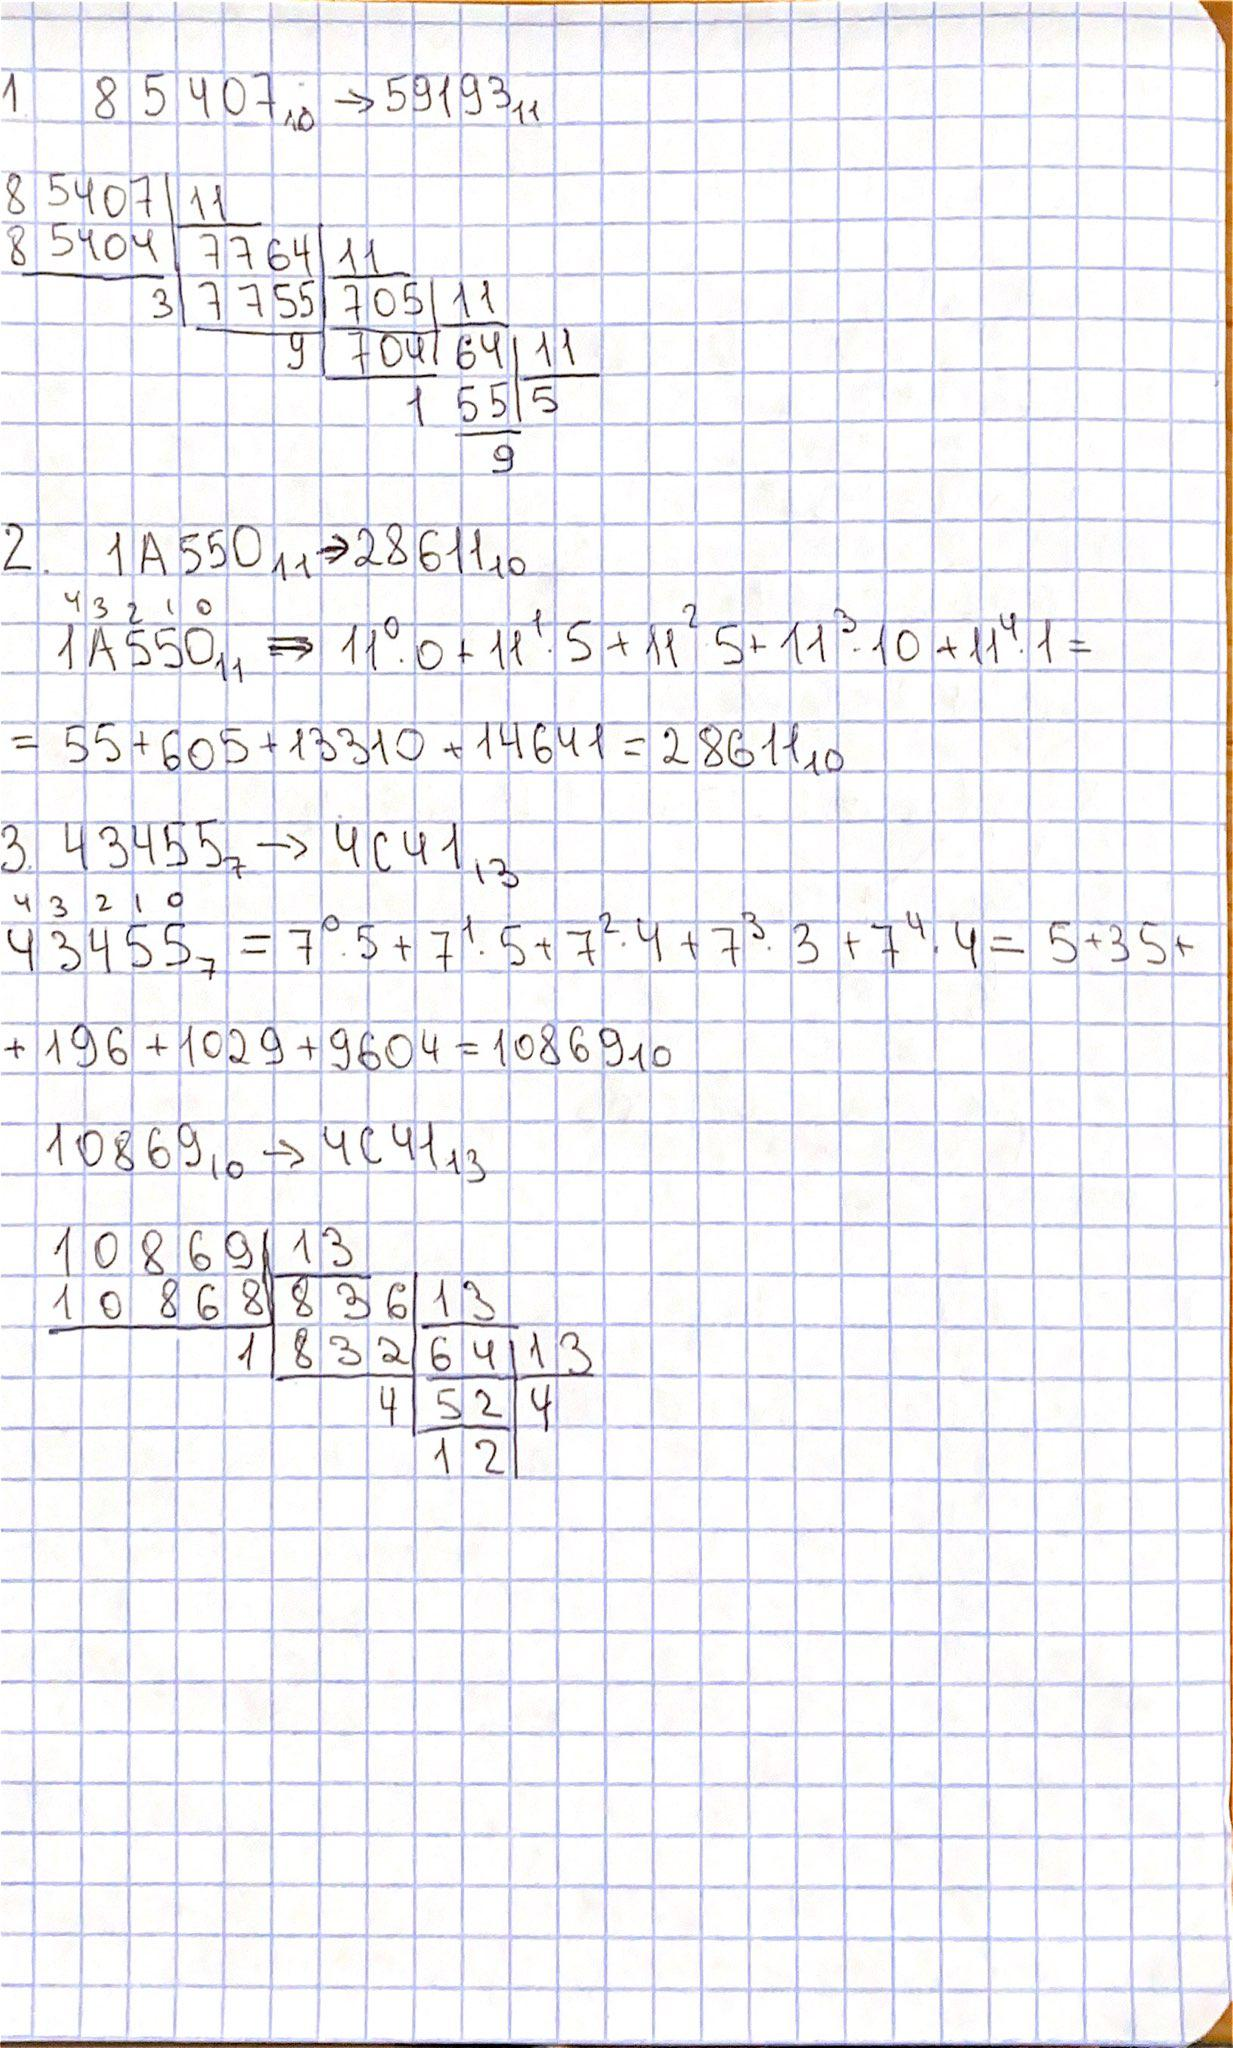 1 85407₁₀ → 59193₁₁
85407 11
85404 7764 11
3 7755 705 11
9 704 64 11
1 55 5
9
2. 1A550₁₁ → 28611₁₀
4 3 2 1 0
1A550₁₁ ⇒ 11⁰·0 + 11¹·5 + 11²·5 + 11³·10 + 11⁴·1 =
= 55 + 605 + 13310 + 14641 = 28611₁₀
3. 43455₇ → 4C41₁₃
4 3 2 1 0
43455₇ = 7⁰·5 + 7¹·5 + 7²·4 + 7³·3 + 7⁴·4 = 5 + 35 +
+ 196 + 1029 + 9604 = 10869₁₀
10869₁₀ → 4C41₁₃
10869 13
10868 836 13
1 832 64 13
4 52 4
12